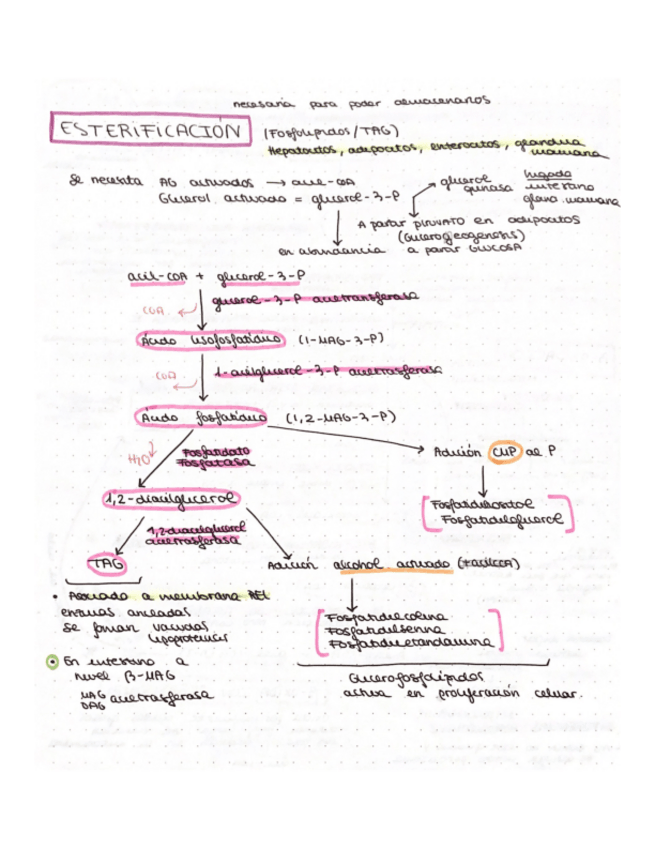 necesaria para poder almacenarlos
ESTERIFICACIÓN (Fosfolípidos/TAG)
Hepatocitos, adipocitos, enterocitos, glándula mamaria
Se necesita AG activados → acil-CoA
Glicerol activado = glicerol-3-P
glicerol quinasa
hígado
intestino
glánd. mamaria
A partir PIRUVATO en adipocitos
(Gliceroneogénesis)
en abundancia a partir GLUCOSA
acil-COA + glicerol-3-P
glicerol-3-P aciltransferasa
COA
Ácido lisofosfatídico (1-MAG-3-P)
1-acilglicerol-3-P aciltransferasa
COA
Ácido fosfatídico (1,2-MAG-3-P)
H2O
Fosfatidato
Fosfatasa
Adición al P
1,2-diacilglicerol
Fosfatidilinositol
Fosfatidilglicerol
1,2-diacilglicerol
aciltransferasa
TAG
Adición alcohol activado
• Asociado a membrana REL
enzimas ancladas
se forman vacuolas
lipoproteínas
Fosfatidilcolina
Fosfatidilserina
Fosfatidiletanolamina
En intestino a
nivel β-MAG
MAG
DAG aciltransferasa
Glicerofosfolípidos
activa en proliferación celular.